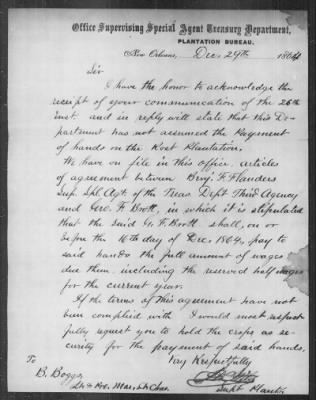 Office Supervising Special Agent Treasury Department,
PLANTATION BUREAU.
New Orleans, Dec. 29th 1864
Sir
I have the honor to acknowledge the
receipt of your communication of the 26th
inst. and in reply will state that this De-
partment has not assumed the Payment
of hands on the Kost Plantation.
We have on file in this office, articles
of agreement between Benj. F. Flanders
Sup. Spl. Agt. of the Treas Dept Third Agency
and Geo. F. Brott, in which it is stipulated
that the said G. F. Brott shall, on or
before the 16th day of Dec. 1864, pay to
said hands the full amount of wages
due them, including the reserved half wages
for the current year.
If the terms of this agreement have not
been complied with I would most respect
fully request you to hold the crops as se-
curity for the payment of said hands.
Very Respectfully
Supt. Plant'n
To
B. Boggs
Lt & Pro. Mar. St Chas.